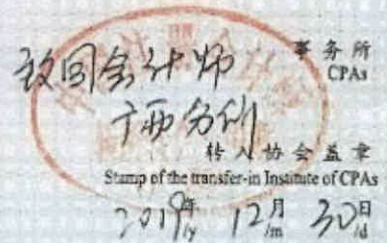 致同会计师 事务所
CPAs
广西分所
转入协会盖章
Stamp of the transfer-in Institute of CPAs
2019年 12月 30日
/y /m /d